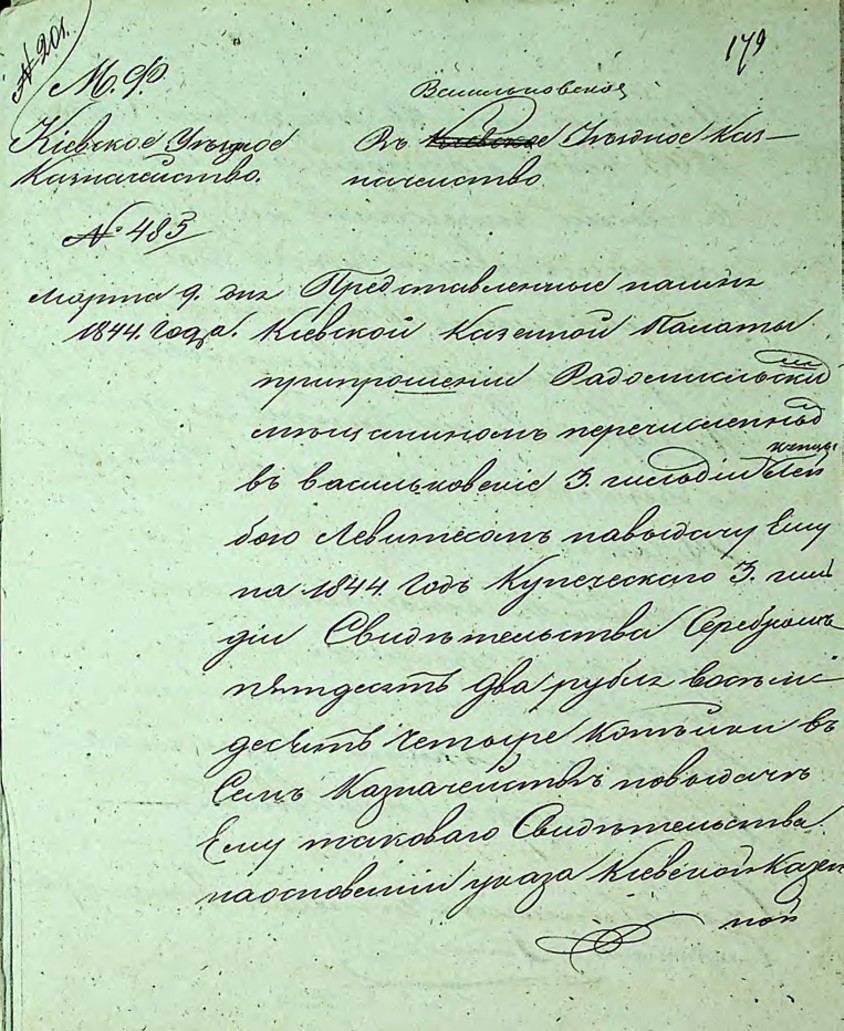 № 201.
179
М. Ф.
Кіевское Уѣздное
Казначейство.
№ 483
марта 9. дня
1844. года.
Васильковское
Въ Кіевское Уѣздное Каз-
начейство
Представленные
Кіевской Казенной Палаты
припрошеніи Радомысльски
мъ
мѣщаниномъ перечисленны
мъ
въ васильковскіе 3. гильдіи
купцы
Лей
бою Левитесомъ навыдачу Ему
на 1844. Годъ Купеческаго 3. гиль
діи Свидѣтельства Серебромъ
пятдесятъ два рубля восемь-
десятъ четыре копѣйки въ
Семъ Казначействѣ повыдачѣ
Ему таковаго Свидѣтельства.
наоснованіи указа Кіевской Казен
ной